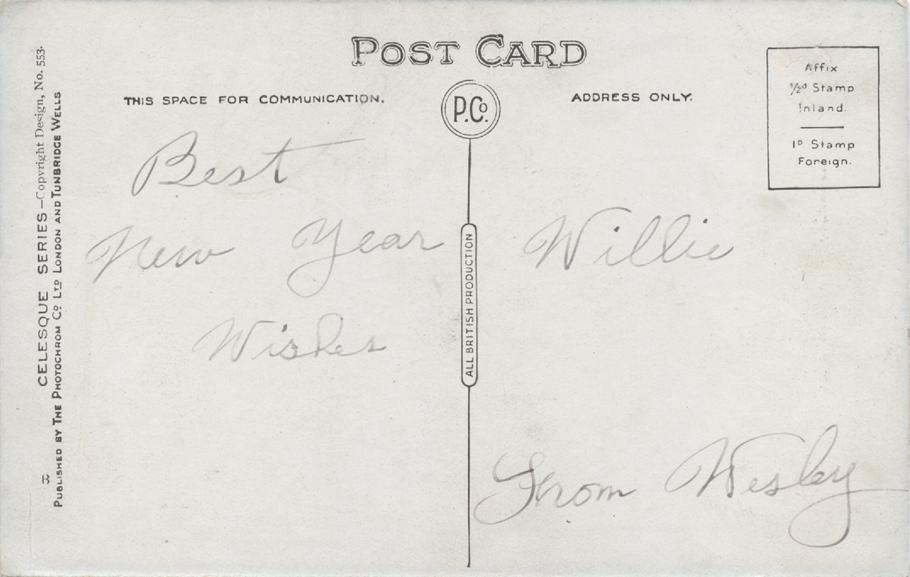 POST CARD
THIS SPACE FOR COMMUNICATION.
P.Co.
ADDRESS ONLY.
Affix
½d Stamp
Inland.
1D Stamp
Foreign.
Best
New Year
Wishes
Willie
From Wesley
ALL BRITISH PRODUCTION
B CELESQUE SERIES—Copyright Design, No. 553.
PUBLISHED BY THE PHOTOCHROM CO LTD LONDON AND TUNBRIDGE WELLS